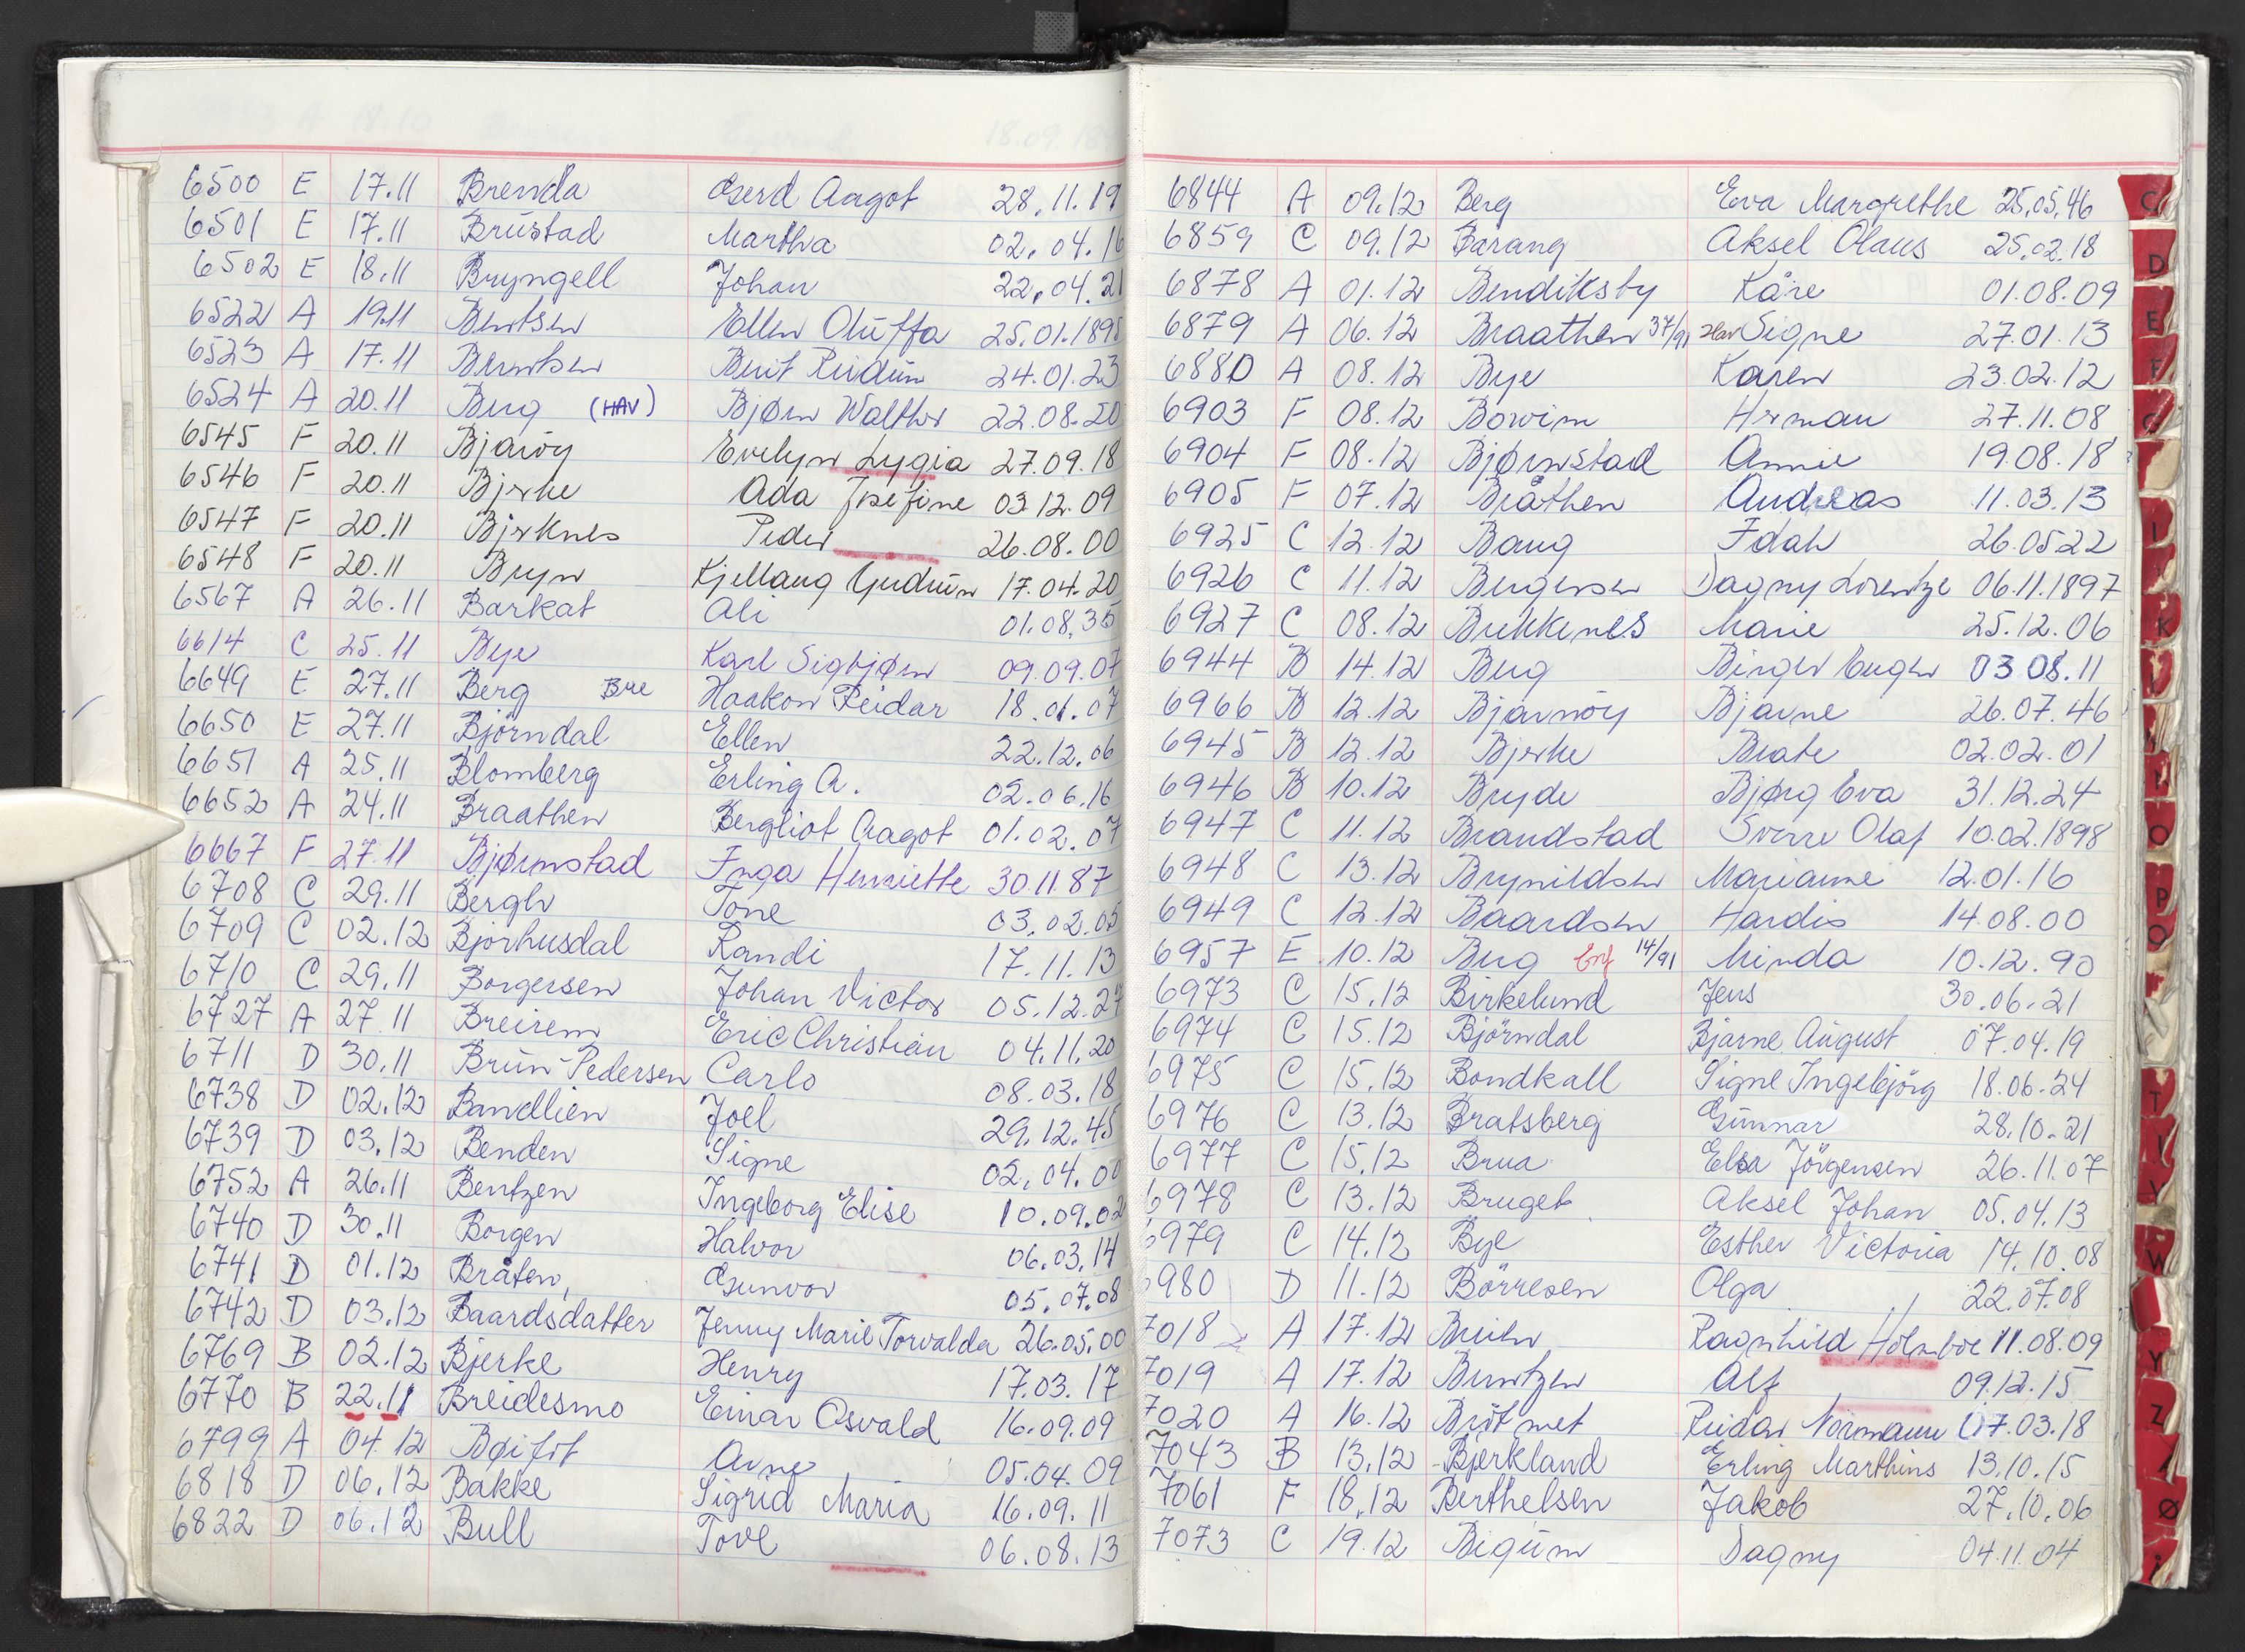 6500 E 17.11 Brenda Gerd Aagot 28.11.19
6501 E 17.11 Brustad Martha 02.04.16
6502 E 18.11 Bryngell Johan 22.04.21
6522 A 19.11 Bentsen Ellen Oluffa 25.01.1895
6523 A 17.11 Berntsen Berit Reidun 24.01.23
6524 A 20.11 Berg (HAV) Bjørn Walther 22.08.20
6545 F 20.11 Bjarøy Evelyn Lygia 27.09.18
6546 F 20.11 Bjerke Ada Josefine 03.12.09
6547 F 20.11 Bjerknes Peder 26.08.00
6548 F 20.11 Bryn Kjellaug Gudrun 17.04.20
6567 A 26.11 Barkat Ali 01.08.35
6614 C 25.11 Bye Karl Sigbjørn 09.09.07
6649 E 27.11 Berg Bre Haakon Reidar 18.01.07
6650 E 27.11 Björndal Ellen 22.12.06
6651 A 25.11 Blomberg Erling A. 02.06.16
6652 A 24.11 Braathen Bergliot Aagot 01.02.07
6667 F 27.11 Bjørnstad Inga Henriette 30.11.87
6708 C 29.11 Bergh Tone 03.02.05
6709 C 02.12 Bjorhusdal Randi 17.11.13
6710 C 29.11 Borgersen Johan Victor 05.12.27
6727 A 27.11 Breirem Eric Christian 04.11.20
6711 D 30.11 Brun-Pedersen Carlo 08.03.18
6738 D 02.12 Bandlien Joel 29.12.45
6739 D 03.12 Benden Signe 02.04.00
6752 A 26.11 Bentzen Ingeborg Elise 10.09.02
6740 D 30.11 Borgen Halvor 06.03.14
6741 D 01.12 Bråten Gunvor 05.07.08
6742 D 03.12 Baardsdatter Jenny Marie Torvalda 26.05.00
6769 B 02.12 Bjerke Henry 17.03.17
6770 B 22.11 Breidesmo Einar Osvald 16.09.09
6799 A 04.12 Bøifot Arne 05.04.09
6818 D 06.12 Bakke Sigrid Maria 16.09.11
6822 D 06.12 Bull Tove 06.08.13
6844 A 09.12 Berg Eva Margrethe 25.05.46
6859 C 09.12 Barang Aksel Olaus 25.02.18
6878 A 01.12 Bendiksby Kåre 01.08.09
6879 A 06.12 Braathen 37/91 Hav Signe 27.01.13
6880 A 08.12 Bye Karen 23.02.12
6903 F 08.12 Bowim Herman 27.11.08
6904 F 08.12 Bjørnstad Annie 19.08.18
6905 F 07.12 Bråthen Andreas 11.03.13
6925 C 12.12 Bang Idah 26.0522
6926 C 11.12 Bergersen Dagny Lorentze 06.11.1897
6927 C 08.12 Brekkenes Marie 25.12.06
6944 B 14.12 Berg Birger Eugen 03.08.11
6966 B 12.12 Bjarnøy Bjarne 26.07.46
6945 B 12.12 Bjerke Beate 02.02.01
6946 B 10.12 Bryde Bjørg Eva 31.12.24
6947 C 11.12 Brandstad Sverre Olaf 10.02.1898
6948 C 13.12 Brynildsen Marianne 12.01.16
6949 C 12.12 Baardsen Hardis 14.08.00
6957 E 10.12 Berg 14/91 Minda 10.12.90
6973 C 15.12 Birkelund Jens 30.06.21
6974 C 15.12 Björndal Bjarne August 07.04.19
6975 C 15.12 Bondkall Signe Ingebjörg 18.06.24
6976 C 13.12 Bratsberg Gunnar 28.10.21
6977 C 15.12 Brua Elsa Jörgensen 26.11.07
6978 C 13.12 Bruget Aksel Johan 05.04.13
6979 C 14.12 Bye Esther Victoria 14.10.08
6980 D 11.12 Börresen Olga 22.07.08
7018 A 17.12 Breien Ragnhild Holmboe 11.08.09
7019 A 17.12 Berntzen Alf 09.12.15
7020 A 16.12 Bröt met Reidar Normann 07.03.18
7043 B 13.12 Bjerkland Erling Marthins 13.10.15
7061 F 18.12 Berthelsen Jakob 27.10.06
7073 C 19.12 Bigum Dagny 04.11.04
C
D
E
F
G
I
K
L
N
O
P
Q
T
V
W
Y
Z
Ø